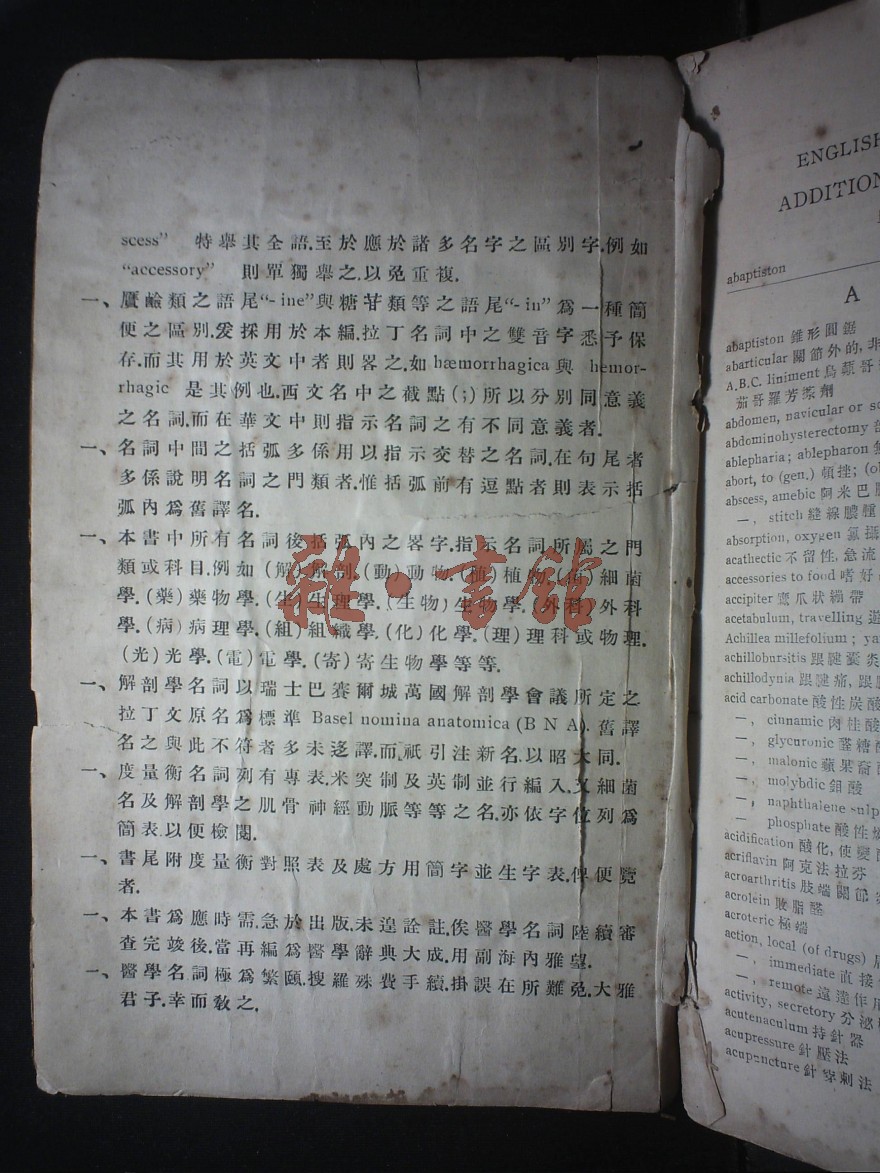 scess” 特舉其全語.至於應於諸多名字之區別字.例如
“accessory” 則單獨舉之.以免重複.
一、贗鹼類之語尾“-ine”與糖苷類等之語尾“-in”爲一種簡
便之區別.爰採用於本編.拉丁名詞中之雙音字悉予保
存.而其用於英文中者則畧之.如hæmorrhagica與 hemor-
rhagic 是其例也.西文名中之截點(;)所以分別同意義
之名詞.而在華文中則指示名詞之有不同意義者.
一、名詞中間之括弧多係用以指示交替之名詞.在句尾者
多係說明名詞之門類者.惟括弧前有逗點者則表示括
弧內爲舊譯名.
一、本書中所有名詞後括弧內之畧字.指示名詞所屬之門
類或科目.例如(解)解剖.(動)動物.(植)植物.(細)細菌
學.(藥)藥物學.(生)生理學.(生物)生物學.(外科)外科
學.(病)病理學.(組)組織學.(化)化學.(理)理科或物理.
(光)光學.(電)電學.(寄)寄生物學等等.
一、解剖學名詞以瑞士巴賽爾城萬國解剖學會議所定之
拉丁文原名爲標準 Basel nomina anatomica (B N A). 舊譯
名之與此不符者多未迻譯.而祇引注新名.以昭大同.
一、度量衡名詞列有專表.米突制及英制並行編入.又細菌
名及解剖學之肌骨神經動脈等等之名.亦依字位列爲
簡表以便檢閱.
一、書尾附度量衡對照表及處方用簡字並生字表.俾便覽
者.
一、本書爲應時需.急於出版.未遑詮註.俟醫學名詞陸續審
查完竣後.當再編爲醫學辭典大成.用副海內雅望.
一、醫學名詞極爲繁頤.搜羅殊費手續.掛誤在所難免.大雅
君子.幸而敎之.
雜·書館
ENGLISH
ADDITION
abaptiston
A
abaptiston 錐形圓鋸
abarticular 關節外的, 非
A.B.C. liniment 烏蔬哥
茄哥羅芳漿劑
abdomen, navicular or
abdominohysterectomy
ablepharia; ablepharon
abort, to (gen.) 頓挫;
abscess, amebic 阿米巴
—, stitch 縫線膿腫
absorption, oxygen 氯攝
acathectic 不留性, 急流
accessories to food 嗜好
accipiter 鷹爪狀繃帶
acetabulum, travelling 遊
Achillea millefolium;
achillobursitis 跟腱囊炎
achillodynia 跟腱痛, 跟
acid carbonate 酸性炭酸
—, cinnamic 肉桂酸
—, glycuronic 醛糖
—, malonic 蘋果
—, molybdic 鉬酸
—, naphthalene
— phosphate 酸性
acidification 酸化, 使變
acriflavin 阿克法拉芬
acroarthritis 肢端關節
acrolein 脂醛
acroteric 極端
action, local (of drugs)
—, immediate 直接
—, remote 遠達作
activity, secretory 分泌
acutenaculum 持針器
acupressure 針壓法
acupuncture 針穿刺法